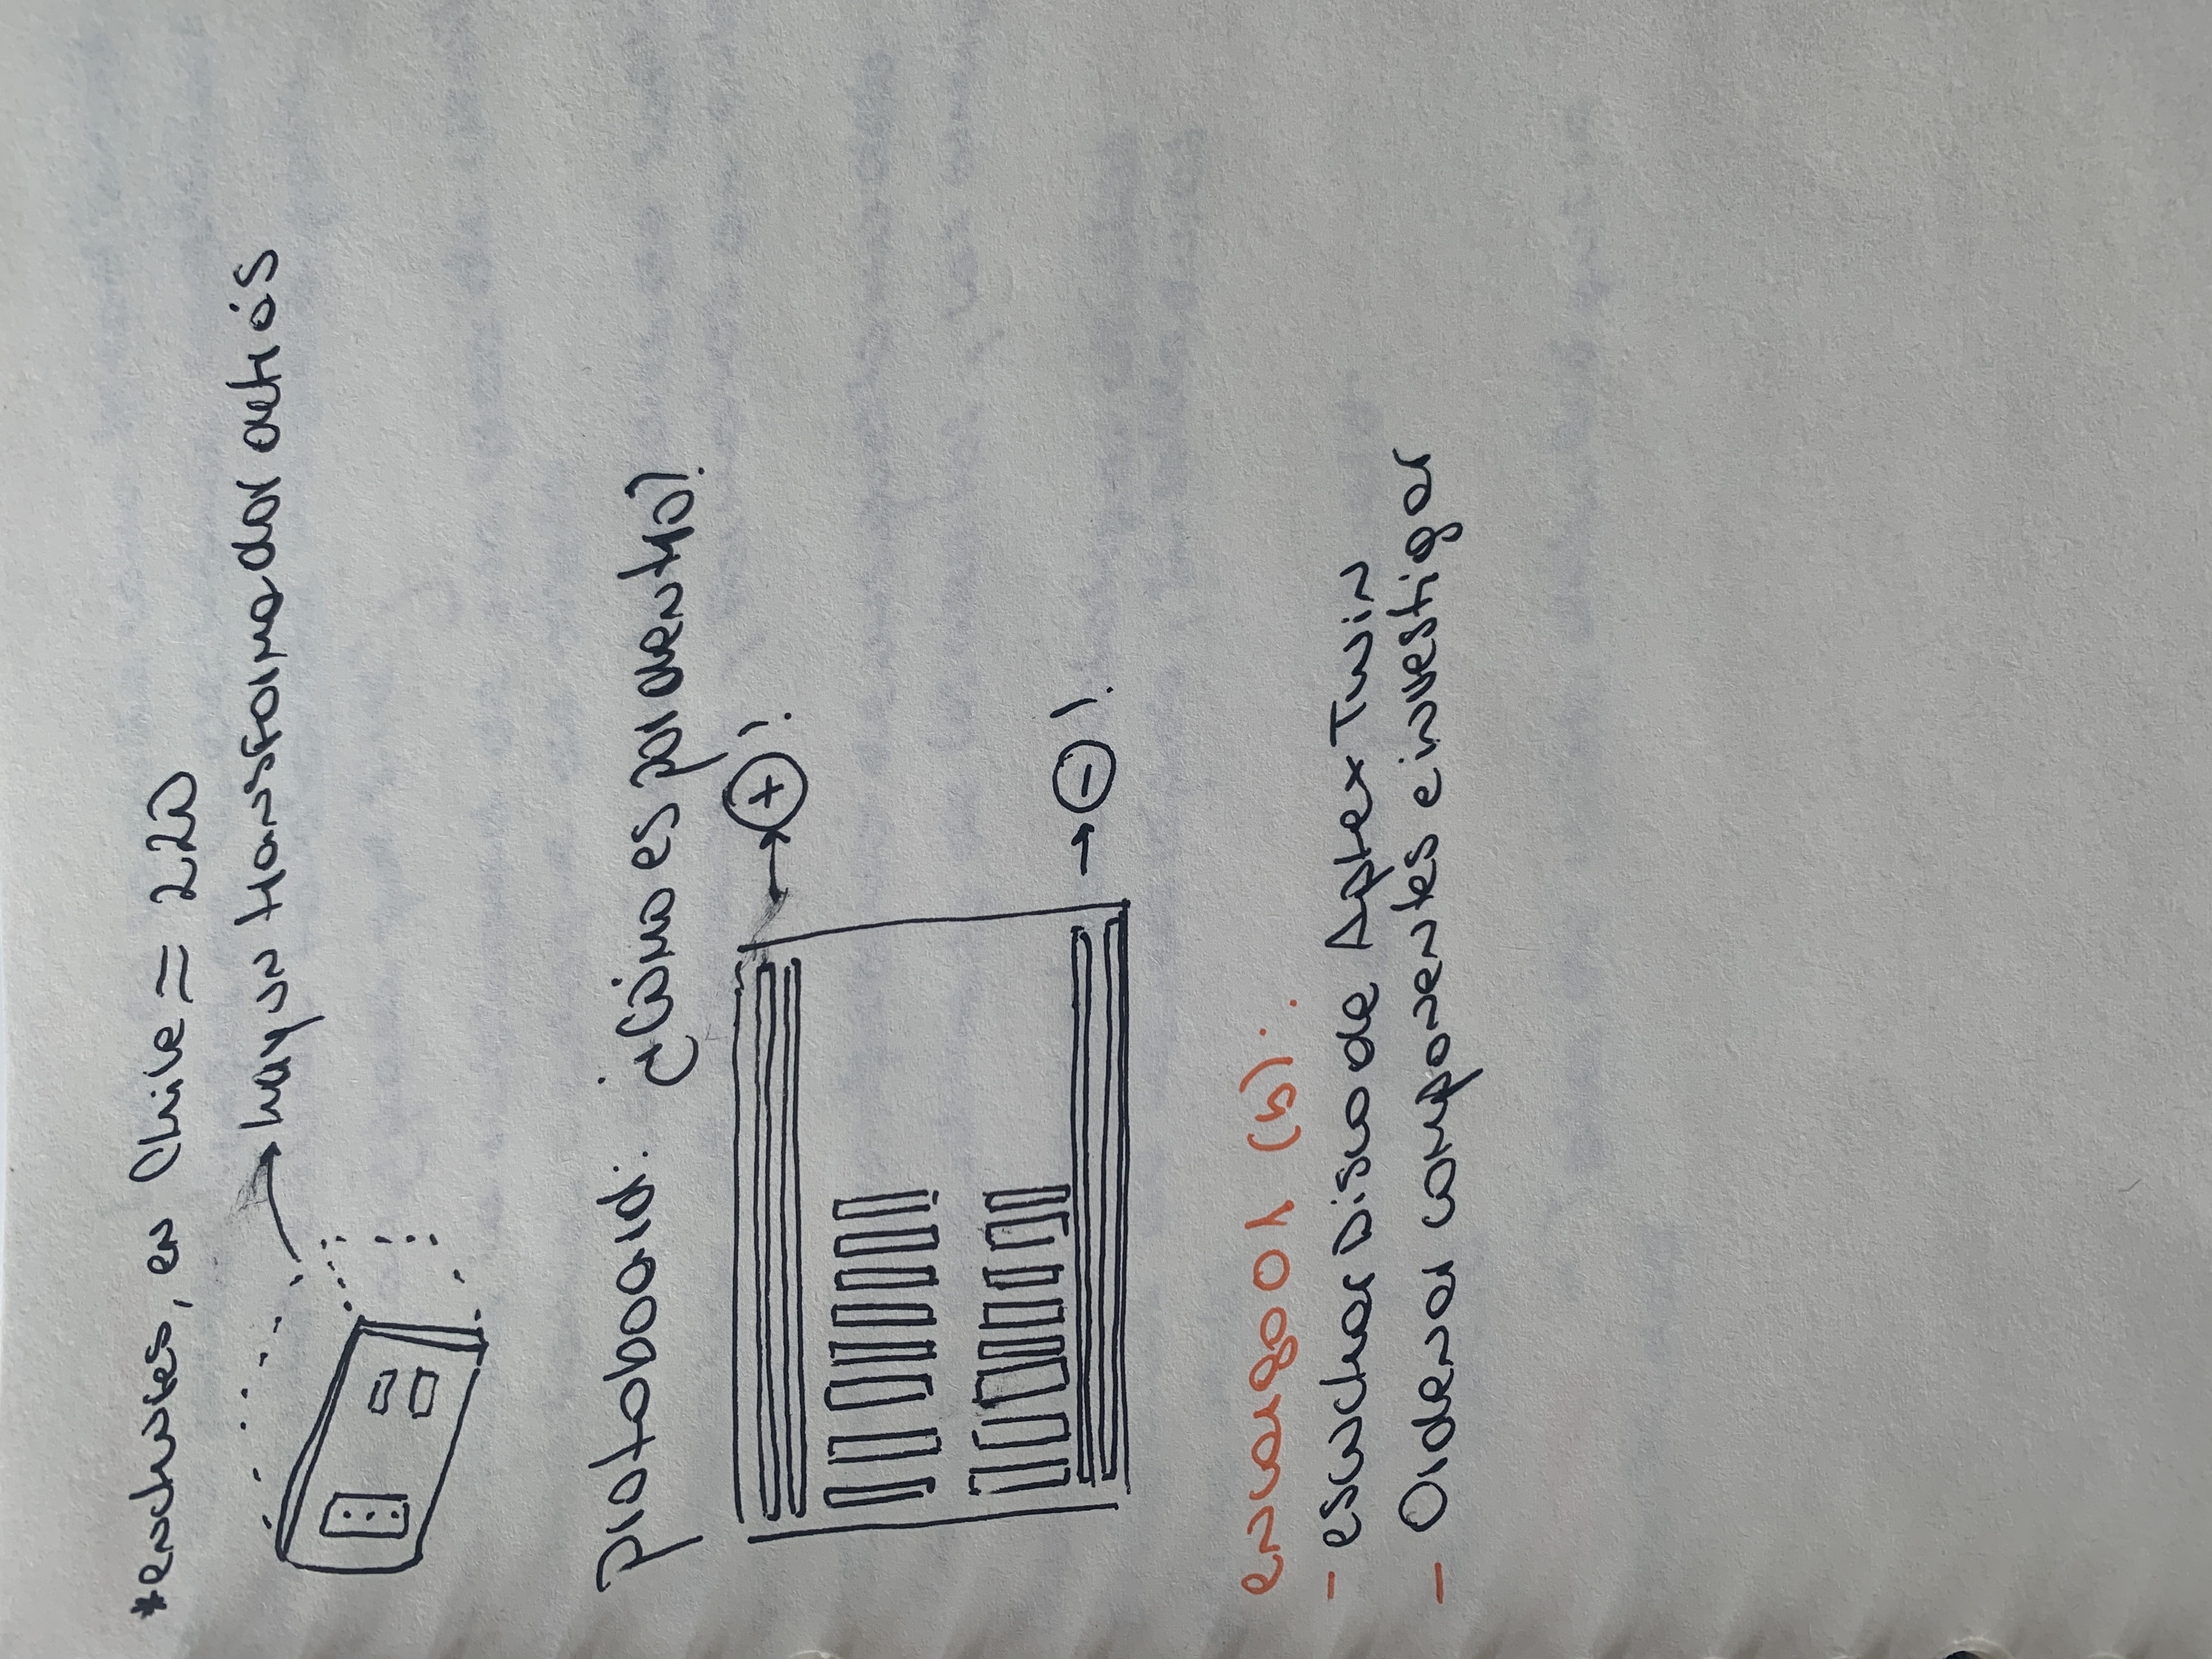 *enchufes, en Chile = 220
hay un transformador detrás
protoboard: ¿Cómo es por dentro?
→ + !
→ - !
encargo 01 (b):
- escuchar Disco de Aphex Twin
- Ordenar componentes e investigar